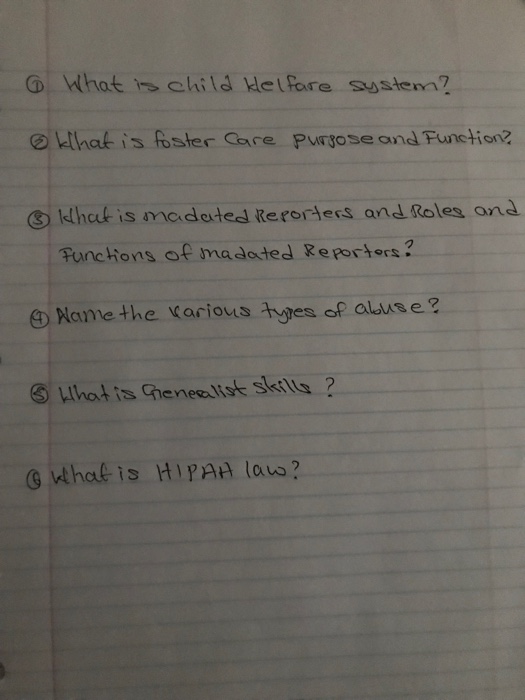 ① What is child Welfare system?
② What is foster Care purpose and Function?
③ What is madated Reporters and Roles and
Functions of madated Reporters?
④ Name the various types of abuse?
⑤ What is Generalist skills ?
⑥ What is HIPAH law?